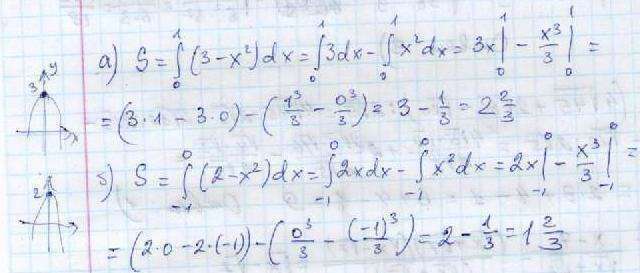 а) S = ∫₀¹ (3 - x²) dx = ∫₀¹ 3dx - ∫₀¹ x² dx = 3x |₀¹ - x³/3 |₀¹ =
= (3 · 1 - 3 · 0) - (1³/3 - 0³/3) = 3 - 1/3 = 2 2/3
3 y x
б) S = ∫₋₁⁰ (2 - x²) dx = ∫₋₁⁰ 2x dx - ∫₋₁⁰ x² dx = 2x |₋₁⁰ - x³/3 |₋₁⁰ =
2
= (2 · 0 - 2 · (-1)) - (0³/3 - (-1)³/3) = 2 - 1/3 = 1 2/3